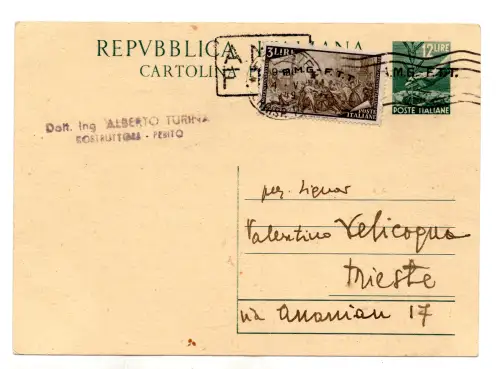 REPVBBLICA ITALIANA
CARTOLINA
3 LIRE
A.M.G. F.T.T.
POSTE ITALIANE
12 LIRE
A.M.G. F.T.T.
POSTE ITALIANE
Dott. Ing ALBERTO TURINA
COSTRUTTORE - PERITO
Valentino Velicogna
Trieste
via Ananian 17